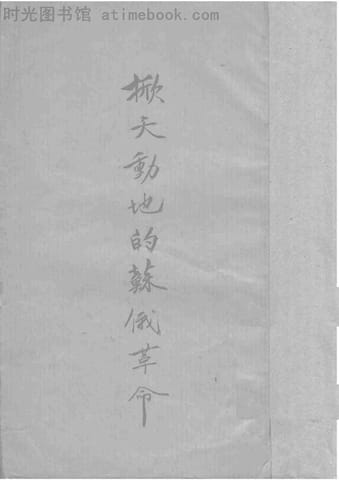 时光图书馆 atimebook.com
掀天動地的蘇俄革命